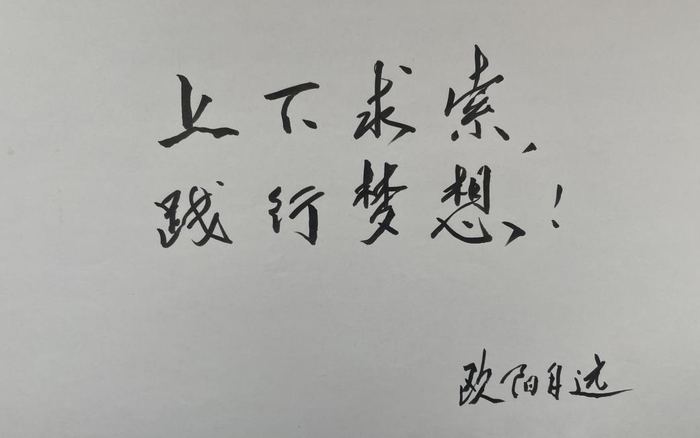 上下求索,
践行梦想!
欧阳自远